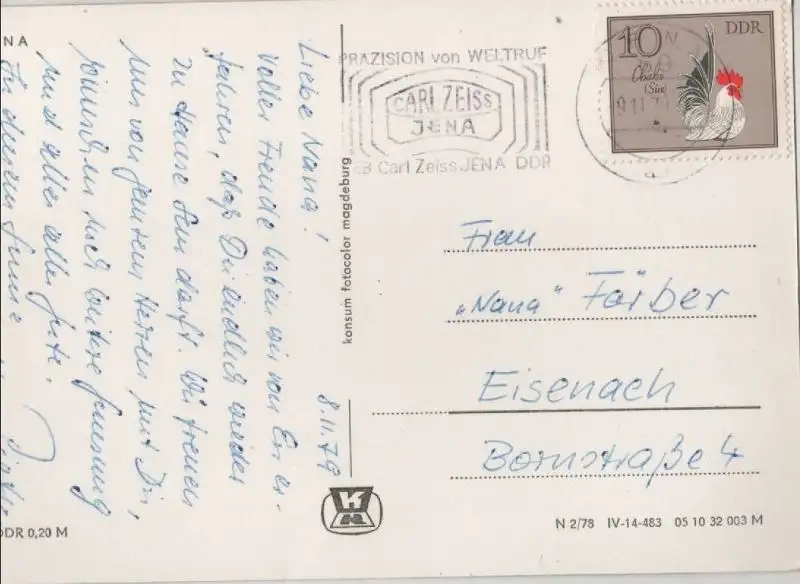 NA
Liebe Nana!
Voller Freude haben wir von Eri er-
fahren, daß Du endlich wieder
zu Hause sein darfst. Wir freuen
uns von ganzem Herzen mit Dir,
wünschen noch weitere Genesung
und alles alles Gute.
In diesem Sinne
8.11.79
DDR 0,20 M
konsum fotocolor magdeburg
PRÄZISION von WELTRUF
CARL ZEISS
JENA
EB Carl Zeiss JENA DDR
10 DDR
Ohiki
Frau
"Nana" Färber
Eisenach
Bornstraße 4
N 2/78 IV-14-483 05 10 32 003 M